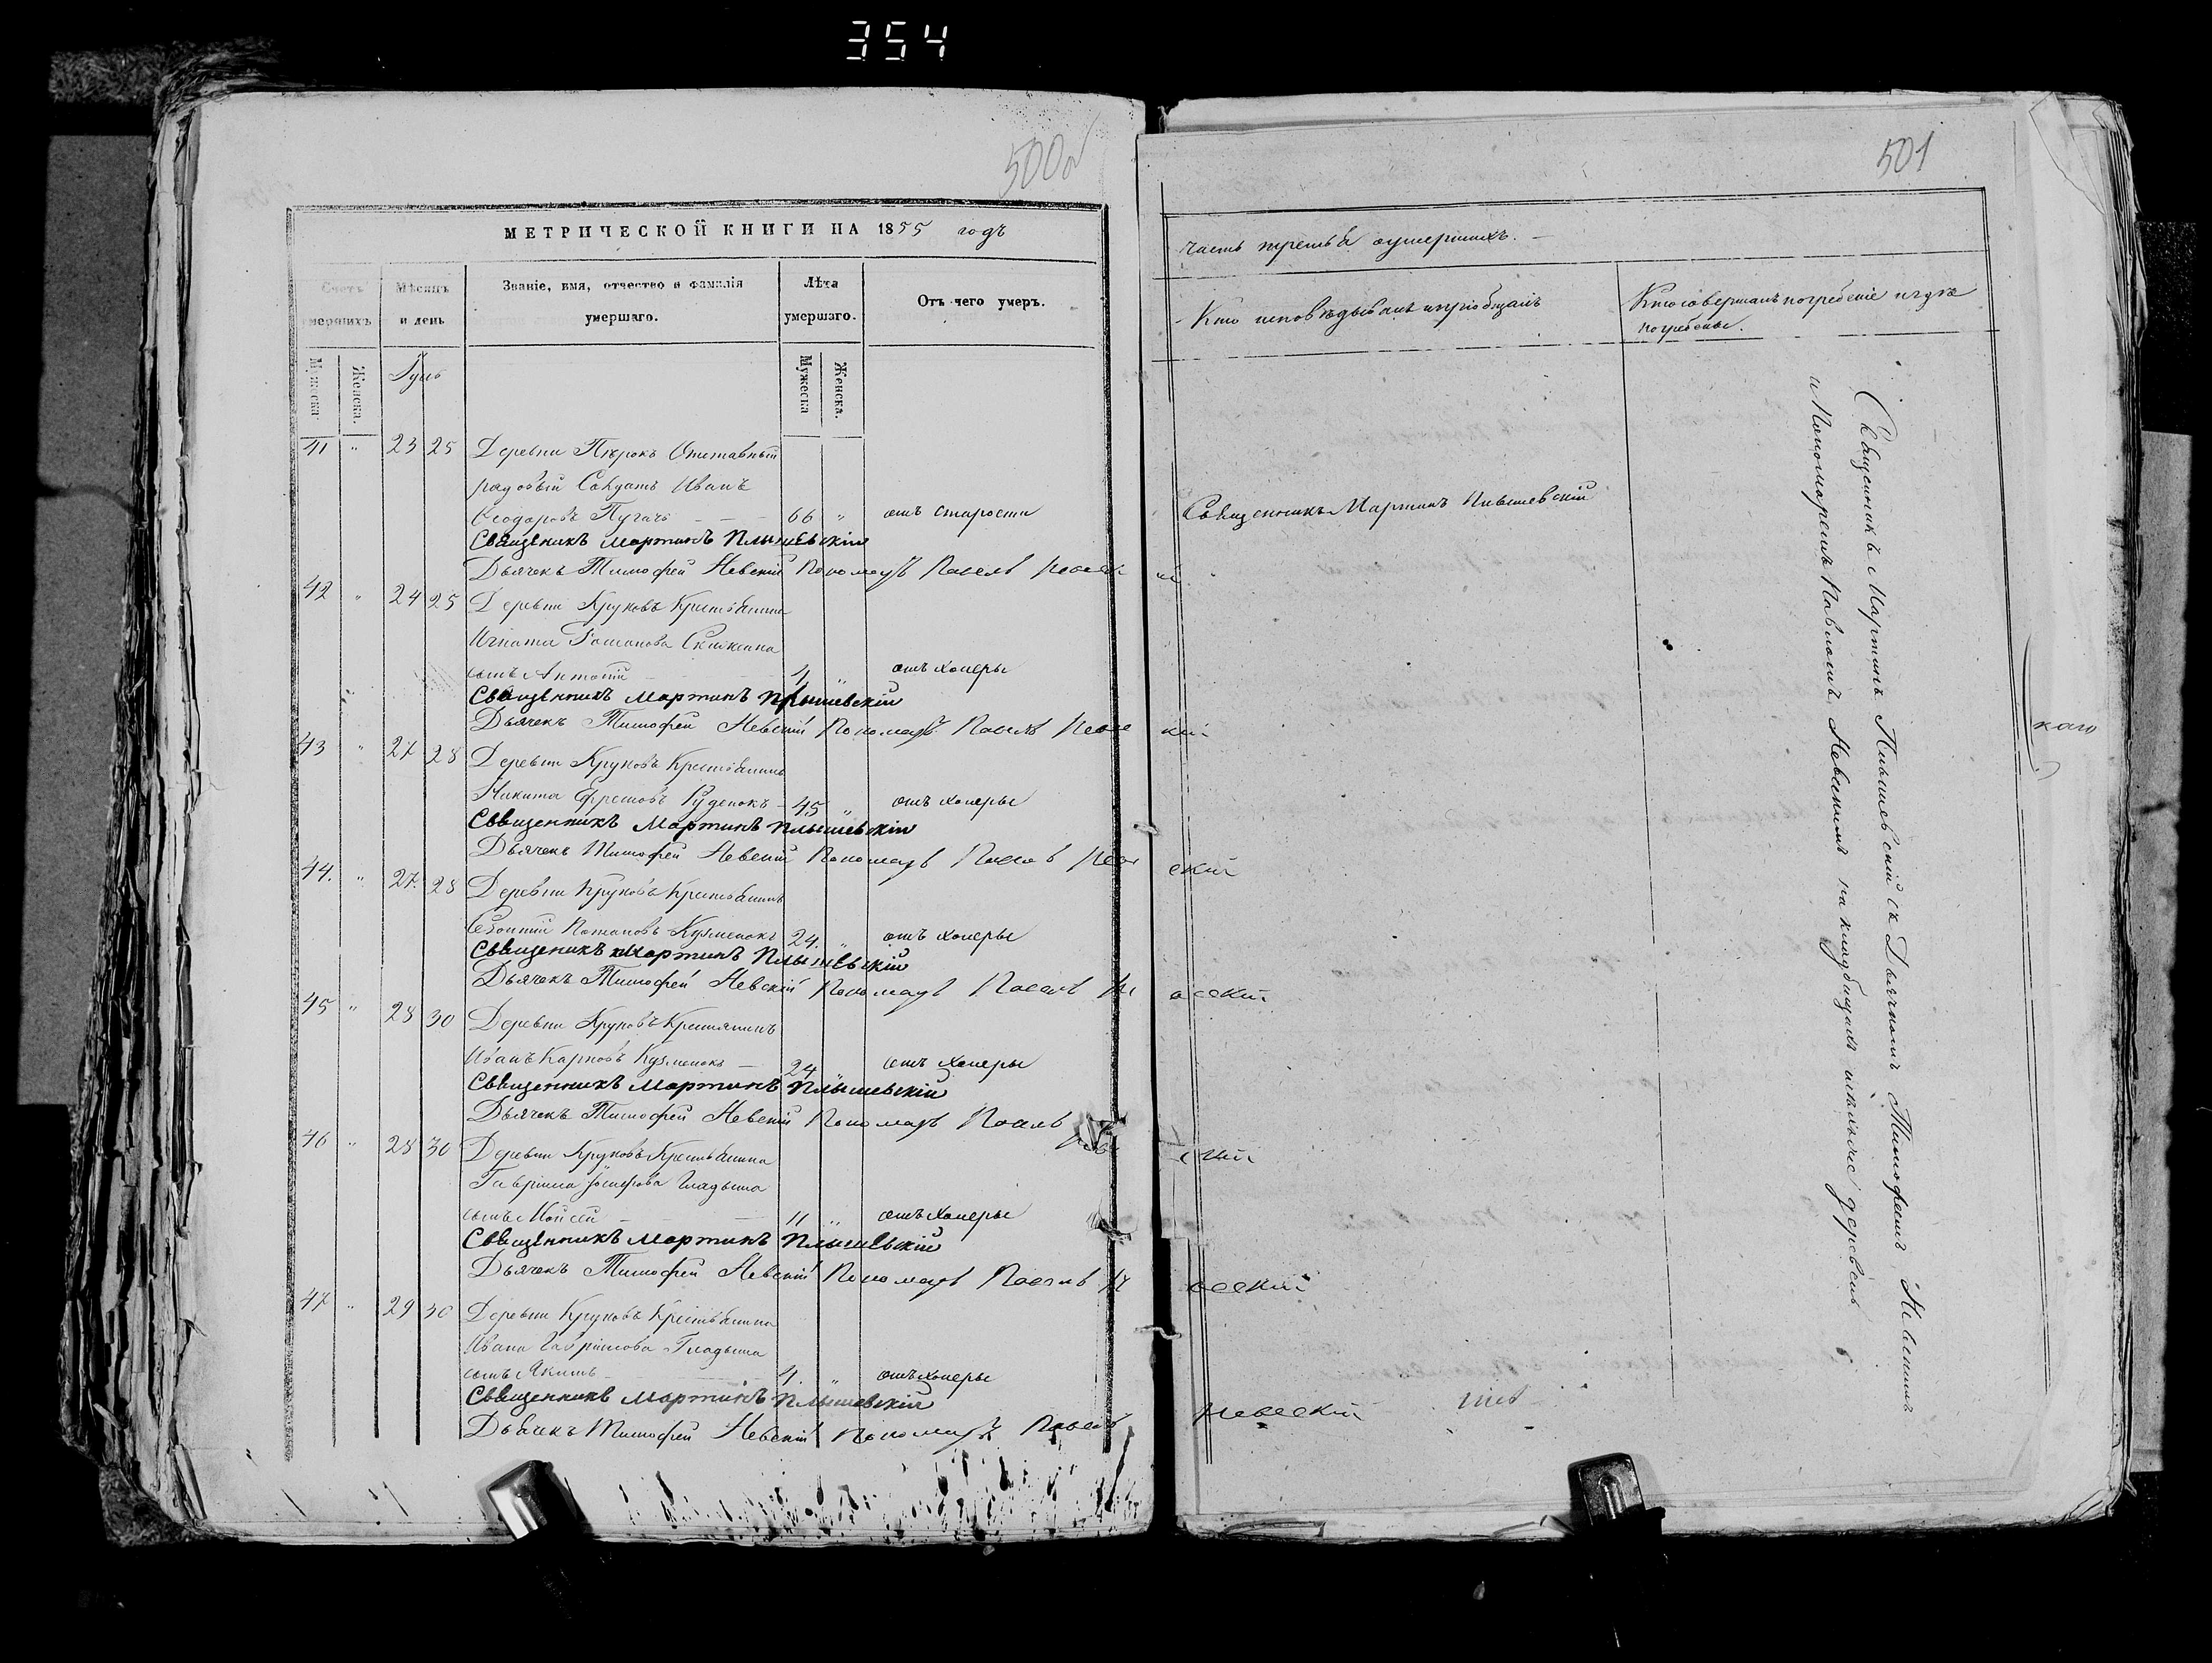 354
500об
МЕТРИЧЕСКОЙ КНИГИ НА 1855 годъ
Счетъ умершихъ
Мѣсяцъ и день
Званіе, имя, отчество и фамилія умершаго.
Лѣта умершаго.
Отъ чего умеръ.
Мужеска
Женска.
Іунь
Мужеска
Женска.
41 " 23 25 Деревни Отставный
рядовый Солдатъ Иванъ
Ѳеодоровъ Пугачъ — 66 " отъ старости
Священникъ Мартинъ Плышевскій
Дьячекъ Тимофей Невскій Пономарь Павелъ Невскій
42 " 24 25 Деревни Круковъ Крестьянина
Игната
сынъ Антоній — 4 " отъ холеры
Священникъ Мартинъ Плышевскій
Дьячекъ Тимофей Невскій Пономарь Павелъ Невскій
43 " 27 28 Деревни Круковъ Крестьянинъ
Никита Ефремовъ Руденокъ — 45 " отъ холеры
Священникъ Мартинъ Плышевскій
Дьячекъ Тимофей Невскій Пономарь Павелъ Невскій
44. " 27. 28 Деревни Круковъ Крестьянинъ
Потаповъ Кузменокъ 24. " отъ холеры
Священикъ Мартинъ Плышевскій
Дьячекъ Тимофей Невскій Пономарь Павелъ Невскій
45 " 28 30 Деревни Круковъ Крестьянинъ
Иванъ Карповъ Кузменокъ — 24 " отъ холеры
Священникъ Мартинъ Плышевскій
Дьячекъ Тимофей Невскій Пономарь Павелъ Невскій
46 " 28 30 Деревни Круковъ Крестьянина
Гавріила Іосифова Гладыша
сынъ Моисей — " отъ холеры
Священникъ Мартинъ Плышевскій
Дьячекъ Тимофей Невскій Пономарь Павелъ Невскій
47 " 29 30 Деревни Круковъ Крестьянина
Ивана Гавріилова Гладыша
сынъ Якимъ — 4. " отъ холеры
Священникъ Мартинъ Плышевскій
Дьячекъ Тимофей Невскій Пономарь Павелъ Невскій
501
часть третья о умершихъ. —
Кто исповѣдывалъ и пріобщалъ
Кто совершалъ погребеніе и гдѣ погребены.
Священникъ Мартинъ Плышевскій
Священникъ Мартинъ Плышевскій съ Дьячкомъ Тимофеемъ Невскимъ
и Пономаремъ Павломъ Невскимъ на кладбищахъ деревень